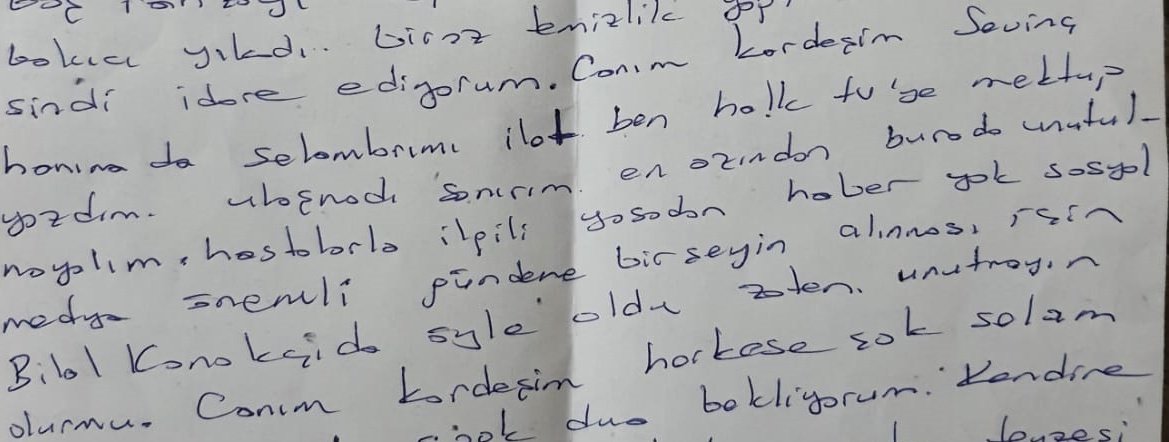 bakıcı yıkadı.. biraz temizlik yap
sindi idare ediyorum. Canım kardeşim Sevinç
hanıma da selamlarımı ilet ben halk tv'ye mektup
yazdım. ulaşmadı sanırım. en azından burada unutul-
mayalım, hastalarla ilgili yasadan haber yok sosyal
medya önemli gündeme birseyin alınması için
Bilal Konakçıda öyle oldu zaten. unutmayın
olurmu. Canım kardeşim herkese çok selam
dua bekliyorum. Kendine